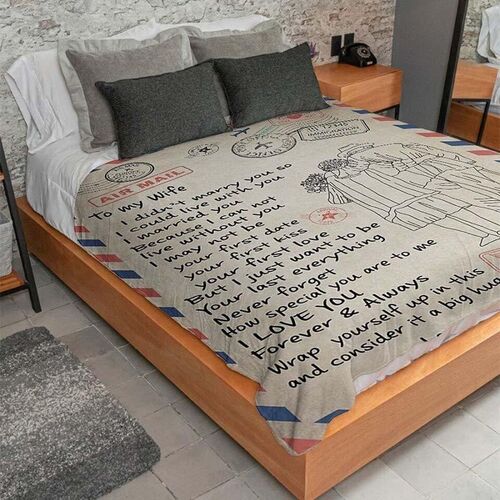 AIR MAIL
To My Wife
I didn't marry you so
I could live with you
I married you
Because I can not
live without you
I may not be
your first date
your first kiss
your first love
But I just want to be
Your last everything
Never forget
How special you are to me
I LOVE YOU
Forever & Always
Wrap yourself up in this
and consider it a big hug
IMMIGRATION